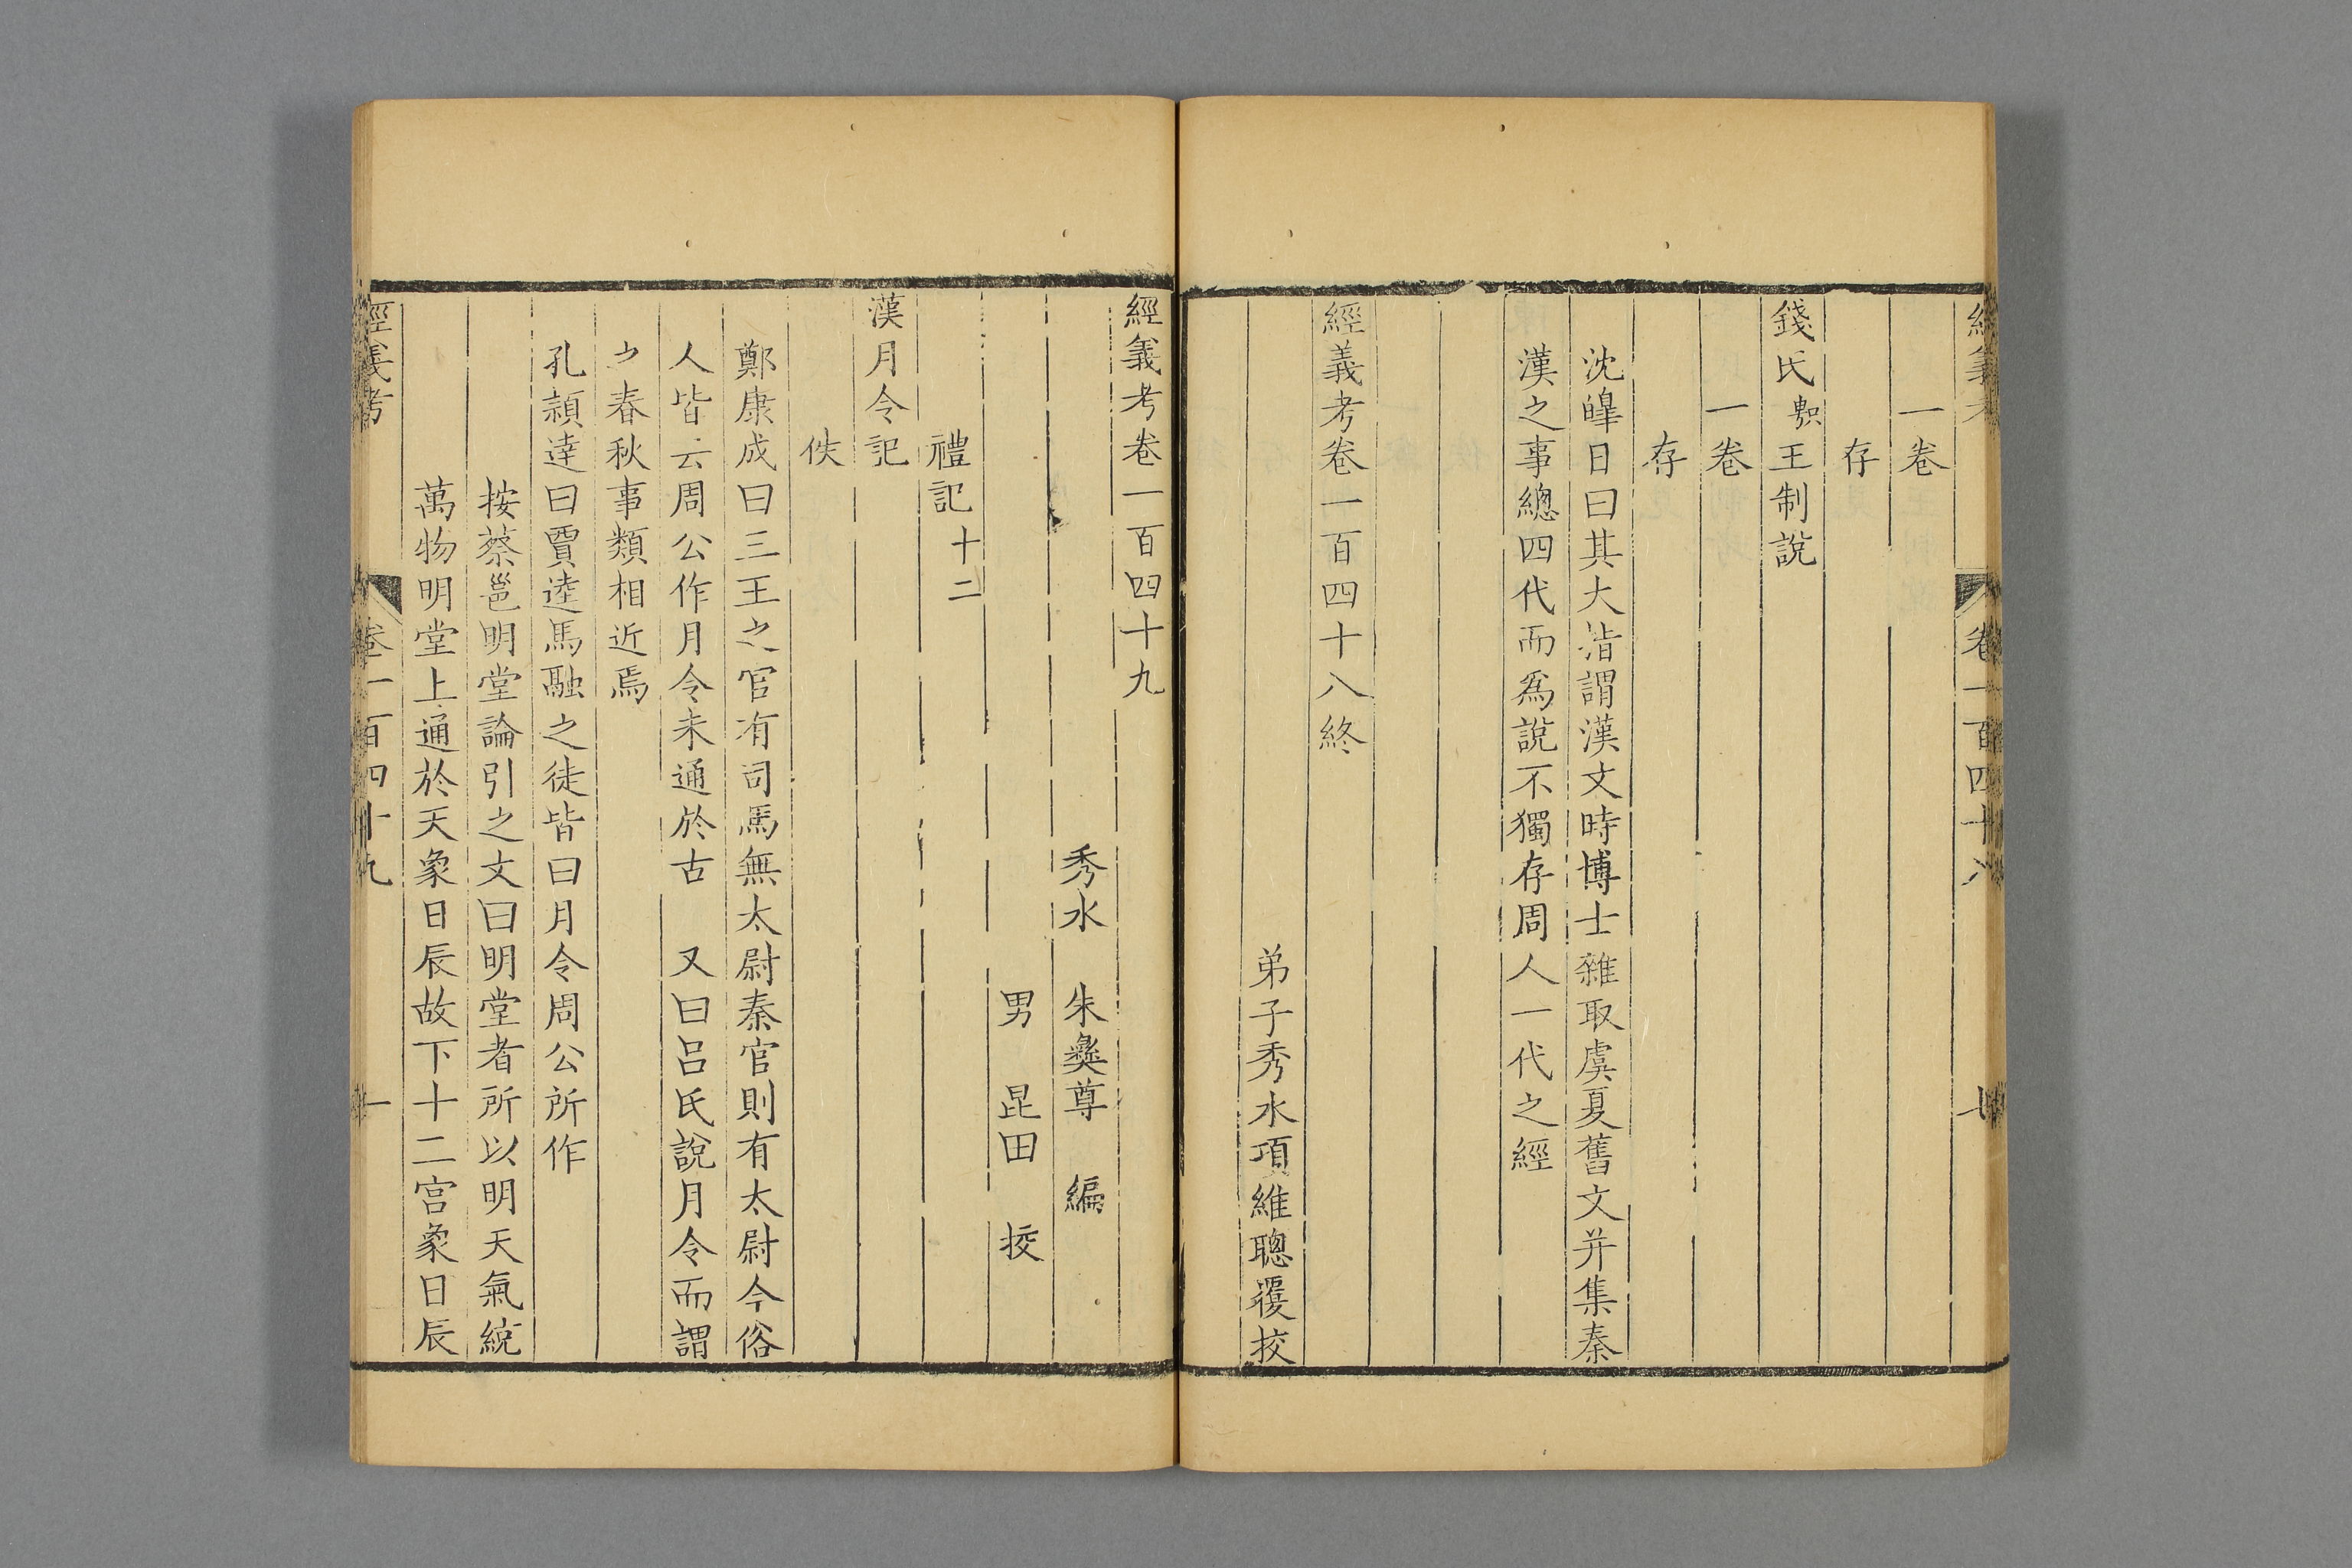 一卷
存
錢氏 㪟 王制說
一卷
存
沈皞日曰其大㫖謂漢文時博士雜取虞夏舊文并集秦
漢之事總四代而爲說不獨存周人一代之經
經義考卷一百四十八終
弟子秀水項維聰覆挍
卷一百四十八
七
經義考卷一百四十九
秀水 朱彝尊 編
男 昆田 挍
禮記十二
漢月令記
佚
鄭康成曰三王之官有司馬無太尉秦官則有太尉今俗
人皆云周公作月令未通於古 又曰呂氏說月令而謂
之春秋事類相近焉
孔頴逹曰賈逵馬融之徒皆曰月令周公所作
按蔡邕明堂論引之文曰明堂者所以明天氣統
萬物明堂上通於天象日辰故下十二宫象日辰
經義考
卷一百四十九
一